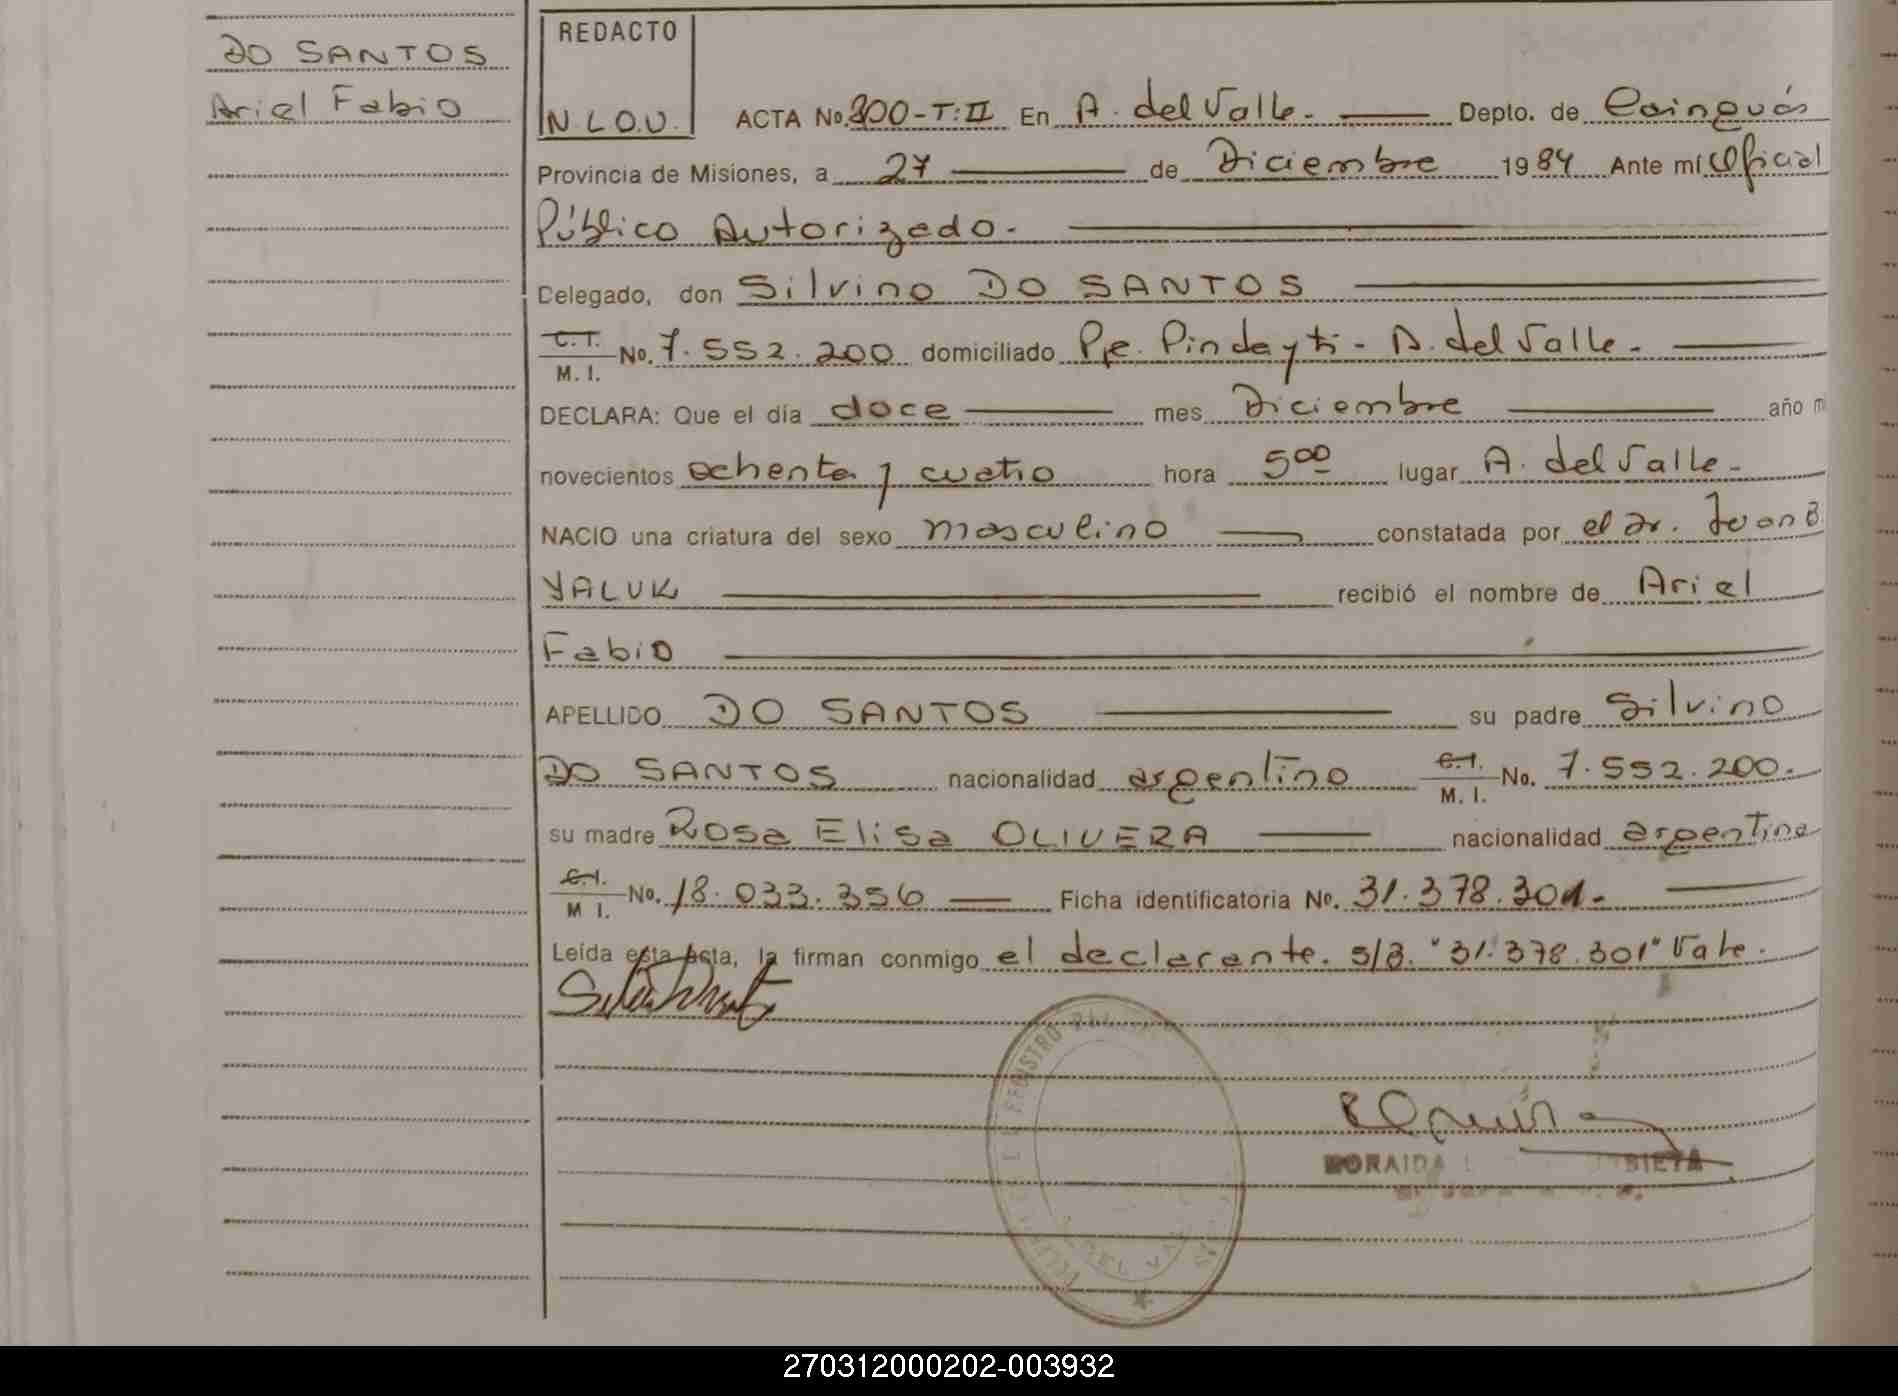 DO SANTOS
Ariel Fabio
REDACTO
N.L.O.U.
ACTA No. 800-T:II En A. del Valle. Depto. de Cainguás
Provincia de Misiones, a 27 de Diciembre 1984 Ante mí Oficial
Público Autorizado.
Delegado, don Silvino DO SANTOS
C.I.
M.I. No. 7.552.200 domiciliado Pje. Pindayti - A. del Valle.
DECLARA: Que el día doce mes Diciembre año m
novecientos ochenta y cuatro hora 5 00 lugar A. del Valle.
NACIO una criatura del sexo masculino constatada por el Dr. Juan B.
YALUK recibió el nombre de Ariel
Fabio
APELLIDO DO SANTOS su padre Silvino
DO SANTOS nacionalidad argentino C.I.
M.I. No. 7.552.200.
su madre Rosa Elisa OLIVERA nacionalidad argentina
C.I.
M I. No. 18.033.356 Ficha identificatoria No. 31.378.301.
Leída esta acta, la firman conmigo el declarante. S/B. "31.378.301" Vale.
REGISTRO
MORAIDA
270312000202-003932